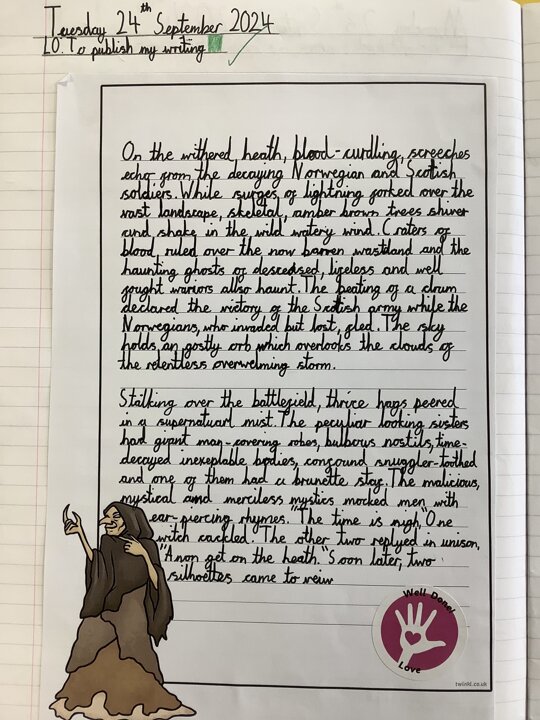 Tuesday 24th September 2024
LO: To publish my writing
On the withered heath, blood-curdling, screeches
echo from the decaying Norwegian and Scotish
soldiers. While surges of lightning forked over the
vast landscape, skeletal, amber brown trees shiver
and shake in the wild watery wind. Craters of
blood ruled over the now barren wastland and the
haunting ghosts of descedsed, lifeless and well
fought warriors allso haunt. The beating of a drum
declared the victory of the Scotish army while the
Norwegians, who invaded but lost, fled. The sky
holds an gostly orb which overlooks the clouds of
the relentless overwelming storm.
Stalking over the battlefield, thrice hags peered
in a supernatuarl mist. The peculiar looking sisters
had giant man-covering robes, bulbous nostils, time-
decayed inexeplable bodies, confound snuggler-toothed
and one of them had a brunette stay. The malicious,
mystical and merciless mystics mocked men with
ear-piercing rhymes. "The time is nigh," One
witch cackled. The other two replyed in unison,
"Anon get on the heath." Soon later, two
silhoettes came to veiw
Well Done!
Love
twinkl.co.uk